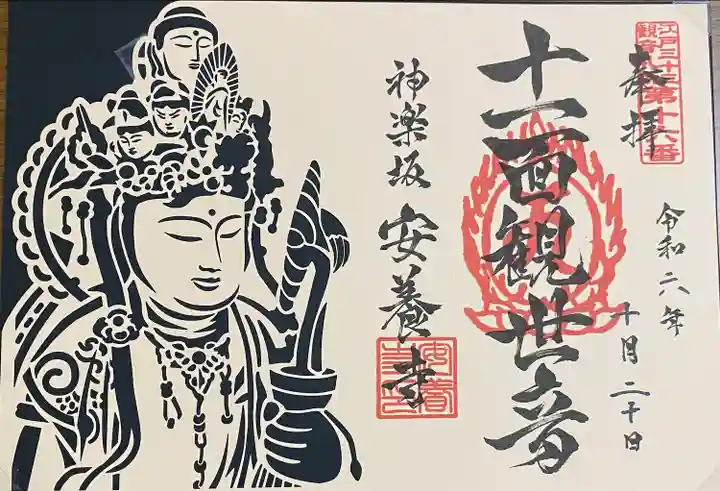 江戸三十三
観音札所第十六番
奉拝
令和六年
十月二十日
十一面観世音
神楽坂
安養寺